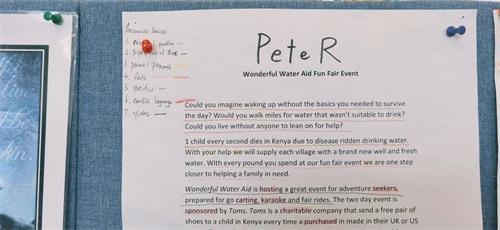 Persuasive Devices
1. Rhetorical question
2. Triple / rule of three
3. personal pronouns
4. facts
5. statistics
6. emotive language
7.
PeteR
Wonderful Water Aid Fun Fair Event
Could you imagine waking up without the basics you needed to survive
the day? Would you walk miles for water that wasn't suitable to drink?
Could you live without anyone to lean on for help?
1 child every second dies in Kenya due to disease ridden drinking water.
With your help we will supply each village with a brand new well and fresh
water. With every pound you spend at our fun fair event we are one step
closer to helping a family in need.
Wonderful Water Aid is hosting a great event for adventure seekers,
prepared for go carting, karaoke and fair rides. The two day event is
sponsored by Toms. Toms is a charitable company that send a free pair of
shoes to a child in Kenya every time a purchased in made in their UK or US